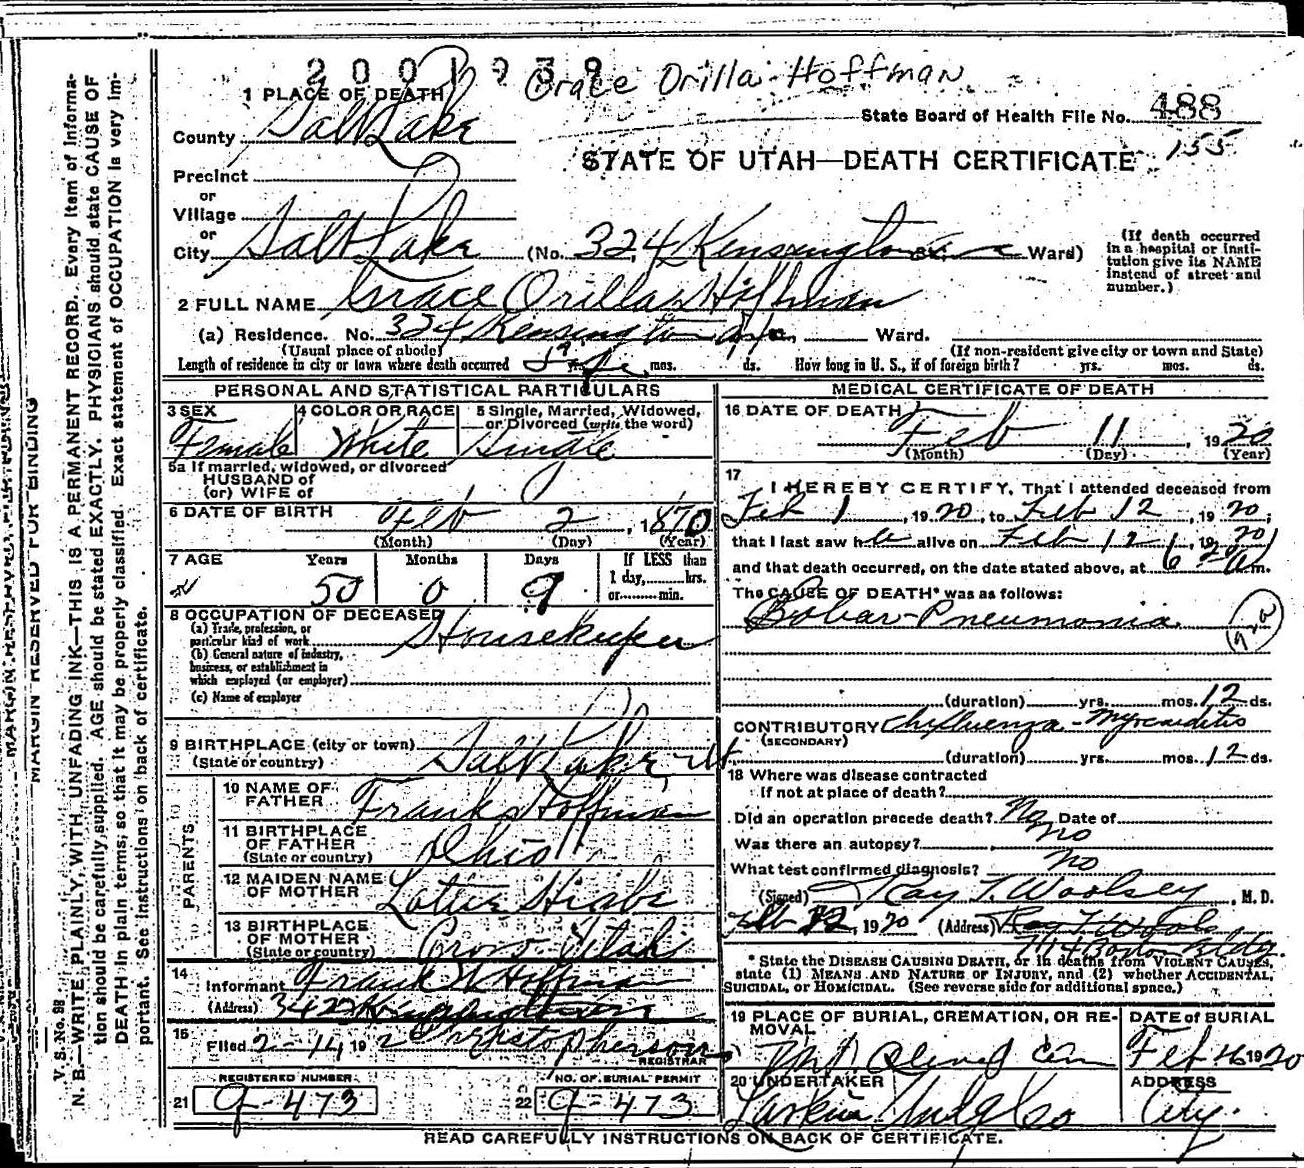 2001939
Grace Orilla Hoffman
1 PLACE OF DEATH
State Board of Health File No. 488
155
County Salt Lake
STATE OF UTAH—DEATH CERTIFICATE
Precinct
or
Village
or
City Salt Lake (No. 324 Kensington St. Ward)
(If death occurred in a hospital or institution give its NAME instead of street and number.)
2 FULL NAME Grace Orilla Hoffman
(a) Residence. No. 324 Kensington Ave. Ward.
(Usual place of abode) (If non-resident give city or town and State)
Length of residence in city or town where death occurred yrs. mos. ds. How long in U. S., if of foreign birth? yrs. mos. ds.
PERSONAL AND STATISTICAL PARTICULARS
3 SEX Female
4 COLOR OR RACE White
5 Single, Married, Widowed, or Divorced (write the word) Single
5a If married, widowed, or divorced
HUSBAND of
(or) WIFE of
6 DATE OF BIRTH Feb 2, 1870
(Month) (Day) (Year)
7 AGE Years 50 Months 0 Days 9
If LESS than 1 day, hrs. or min.
8 OCCUPATION OF DECEASED
(a) Trade, profession, or particular kind of work Housekeeper
(b) General nature of industry, business, or establishment in which employed (or employer)
(c) Name of employer
9 BIRTHPLACE (city or town) Salt Lake, Ut.
(State or country)
PARENTS
10 NAME OF FATHER Frank Hoffman
11 BIRTHPLACE OF FATHER Ohio
(State or country)
12 MAIDEN NAME OF MOTHER Lottie
13 BIRTHPLACE OF MOTHER Utah
(State or country)
14 Informant Frank Hoffman
(Address)
15 Filed 2-14 19 2 Christopherson
REGISTRAR
REGISTERED NUMBER
21 9-473
NO. OF BURIAL PERMIT
22 9-473
MEDICAL CERTIFICATE OF DEATH
16 DATE OF DEATH Feb 11, 1920
(Month) (Day) (Year)
17 I HEREBY CERTIFY, That I attended deceased from
Feb 1, 1920, to Feb 12, 1920;
that I last saw her alive on Feb 12, 1920
and that death occurred, on the date stated above, at 6 20 a m.
The CAUSE OF DEATH* was as follows:
Lobar Pneumonia
(duration) yrs. mos. 12 ds.
CONTRIBUTORY Influenza - Myocarditis
(SECONDARY)
(duration) yrs. mos. 12 ds.
18 Where was disease contracted
If not at place of death?
Did an operation precede death? No Date of
Was there an autopsy? no
What test confirmed diagnosis? no
(Signed) Ray T. Woolsey, M. D.
Feb 12, 1920 (Address) Ray T. Wools
714 Boston Bldg.
* State the DISEASE CAUSING DEATH, or in deaths from VIOLENT CAUSES, state (1) MEANS AND NATURE OF INJURY, and (2) whether ACCIDENTAL, SUICIDAL, or HOMICIDAL. (See reverse side for additional space.)
19 PLACE OF BURIAL, CREMATION, OR REMOVAL Mt. Olivet Cem
DATE of BURIAL Feb 1920
20 UNDERTAKER Larkin Undg Co
ADDRESS City.
READ CAREFULLY INSTRUCTIONS ON BACK OF CERTIFICATE.
MARGIN RESERVED FOR BINDING
V. S. No. 98
N. B.—WRITE PLAINLY, WITH UNFADING INK—THIS IS A PERMANENT RECORD. Every item of information should be carefully supplied. AGE should be stated EXACTLY. PHYSICIANS should state CAUSE OF DEATH in plain terms, so that it may be properly classified. Exact statement of OCCUPATION is very important. See instructions on back of certificate.